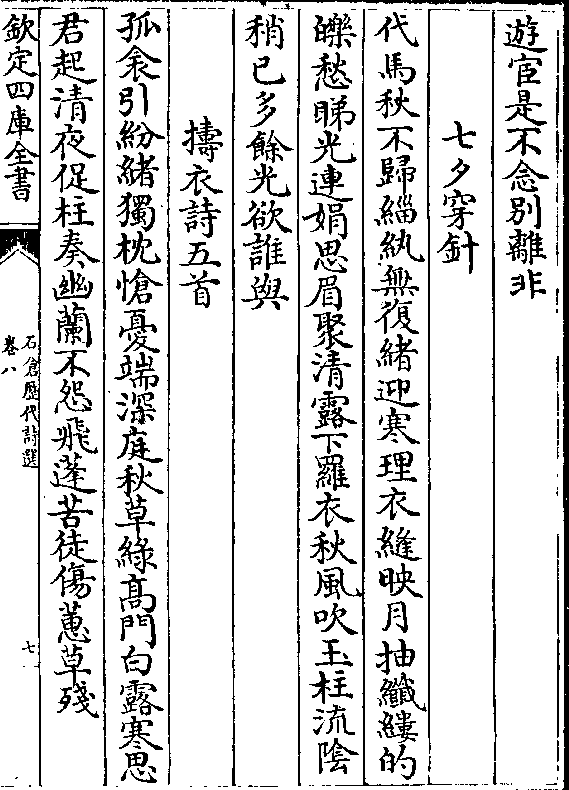 遊宦是不念别離非
七夕穿針
代馬秋不歸緇紈無復緒迎寒理衣縫映月抽纖縷的
皪愁睇光連娟思眉聚清露下羅衣秋風吹玉柱流陰
稍已多餘光欲誰與
擣衣詩五首
孤衾引紛緒獨枕愴憂端深庭秋草綠髙門白露寒思
君起清夜促柱奏幽蘭不怨飛蓬苦徒傷蕙草殘
欽定四庫全書
石倉歷代詩選
卷八
七